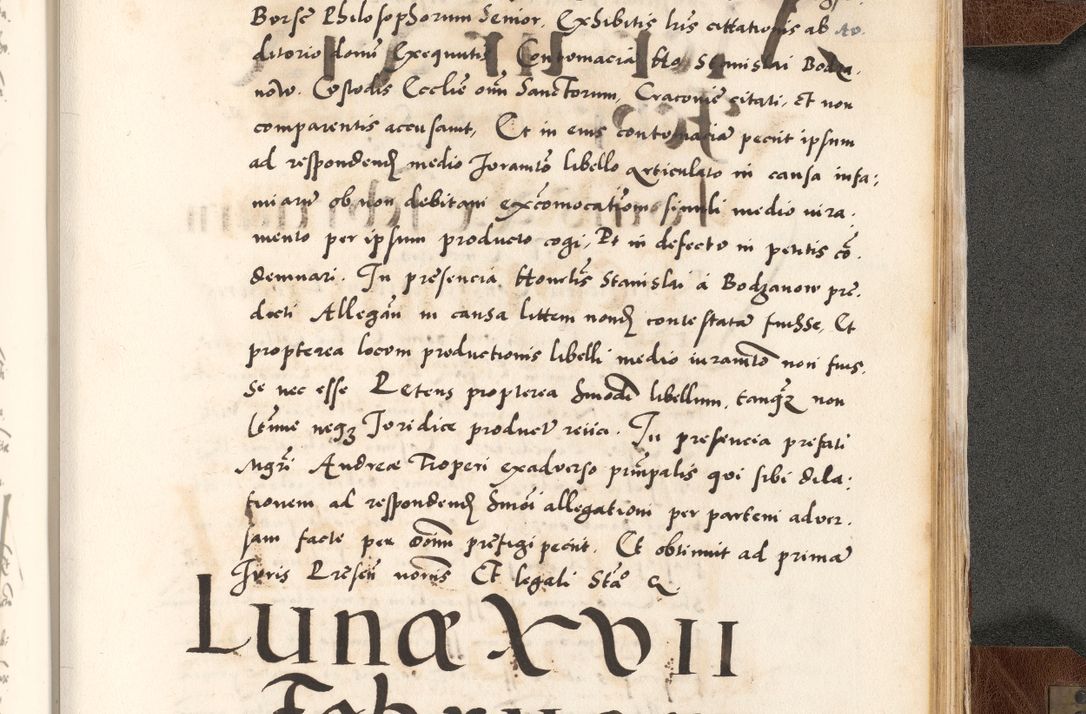 Borsē Philosophorum Senior. Exhibitis lris cittationis ab Au.
ditorio domī Exequutis Contumaciā Hō Stanislai Bodza.
now. Custodis Ecclīe omī Sanctorum, Cracovīe citati, Et non
comparentis accusavit, Et in eius contumaciā peciit ipsum
ad respondend medio Joramto libello articulato in causa infa:
miarū ob non debitam excōmocationis simili medio iura.
mento per ipsum producto cogi, Et in defectu in petitis cō.
demnari. In presencia Honrlis Stanislai á Bodzanow pre.
dicti Allegān in causa littem nond contestatā fuisse, Et
propterea locum productionis libelli medio iuramto non fuis.
se nec esse Petens propterea hmodi libellum, tanq non
ltime neqz Joridice product reiici. In presencia prefati
Mgri Andreæ Troperi exadverso prīnpalis qui sibi dila:
tionem ad respondend hmōi allegationi per partem adver.
sam facte per domī prefigi peciit. Et obtinuit ad primā
Juris Presen nomīs Et legali Stao
Lunæ XVII
Februar